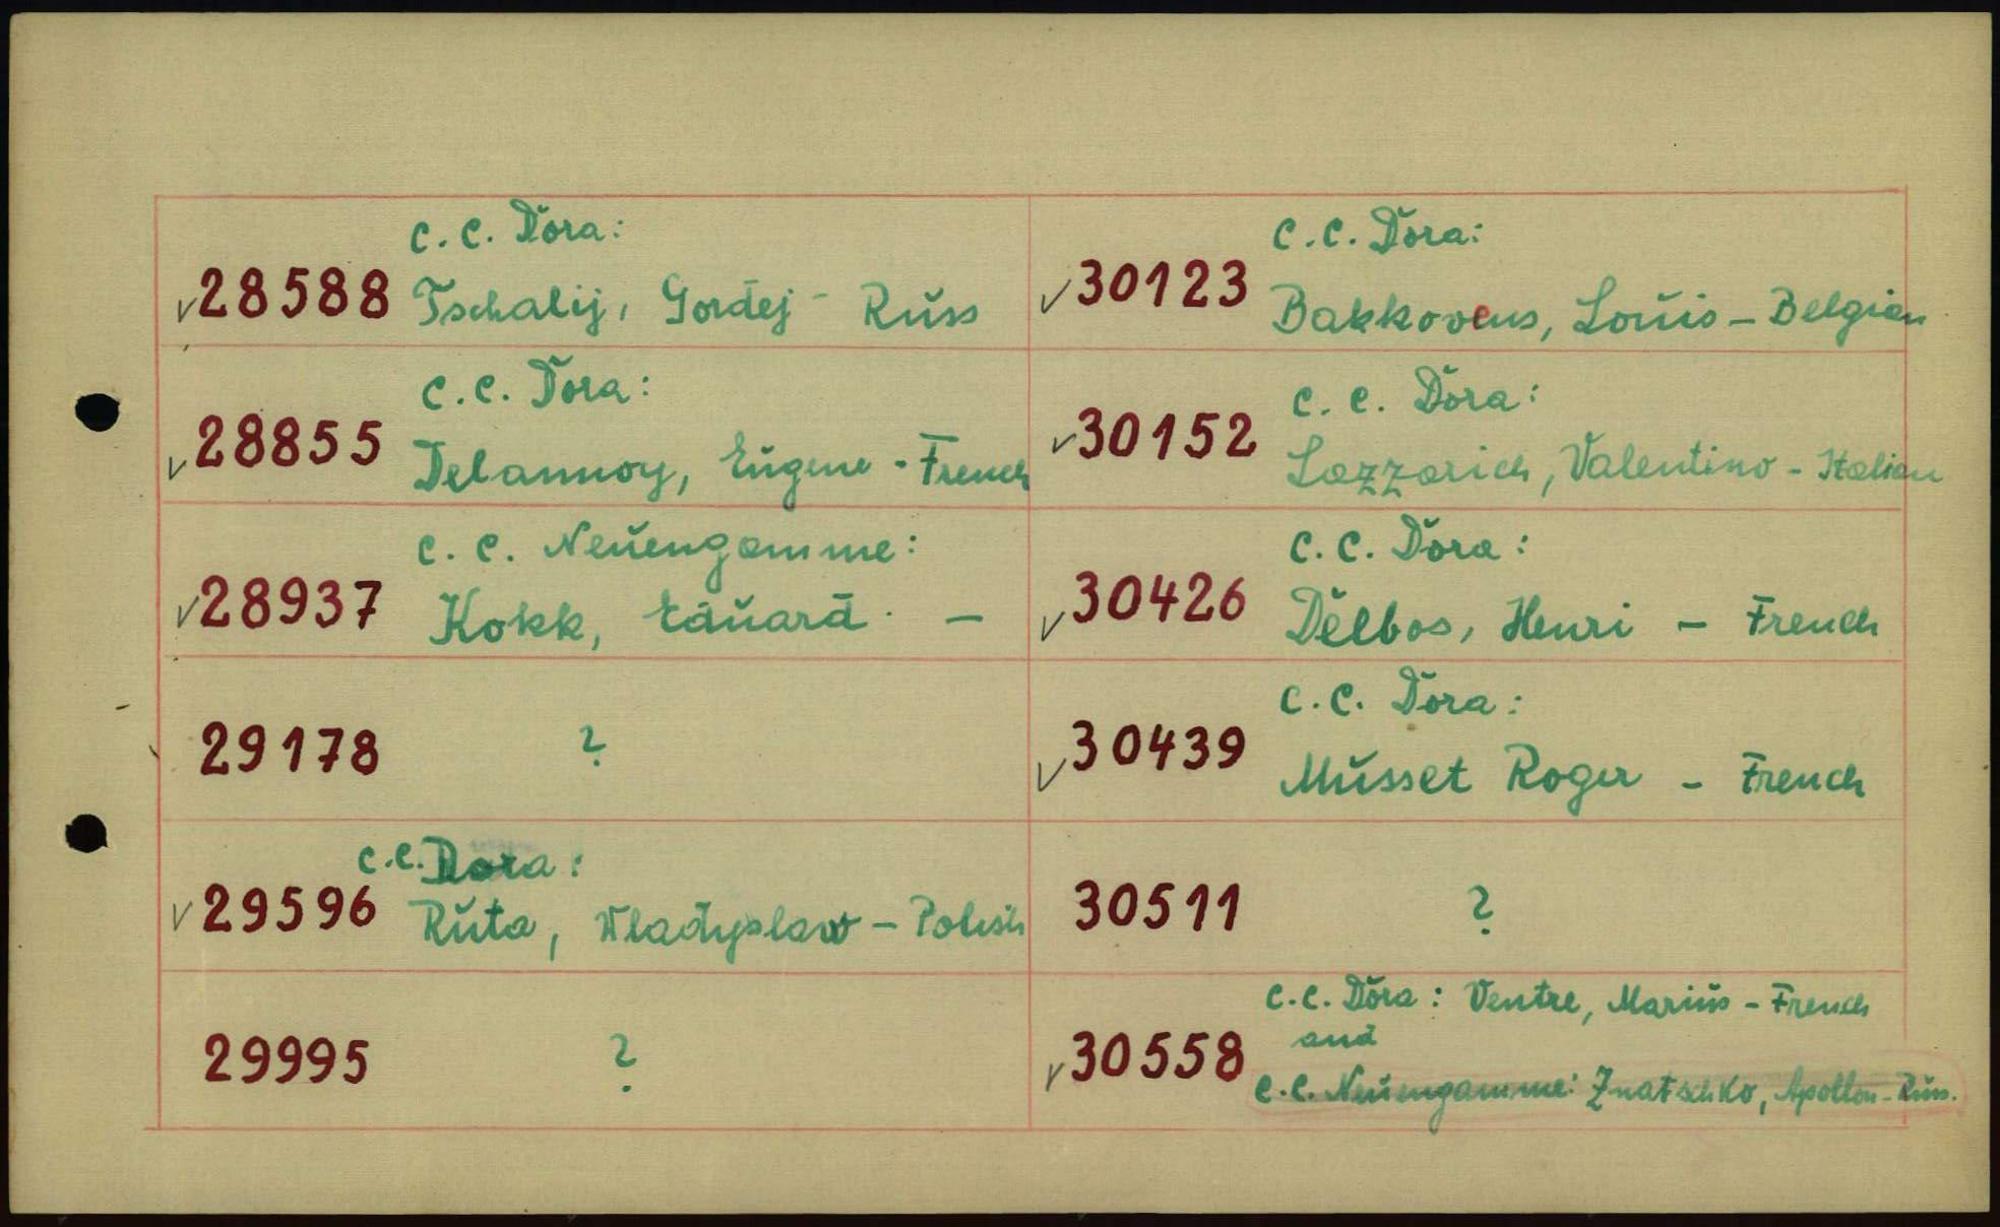 C.C. Dora:
✓28588 Tschalij, Gordej - Russ
C.C. Dora:
✓28855 Delannoy, Eugene - French
C.C. Neuengamme:
✓28937 Kokk, Eduard. -
29178 ?
C.C. Dora:
✓29596 Ruta, Wladyslaw - Polish
29995 ?
C.C. Dora:
✓30123 Bakkovens, Louis - Belgian
C.C. Dora:
✓30152 Lazzarich, Valentino - Italian
C.C. Dora:
✓30426 Delbos, Henri - French
C.C. Dora:
✓30439 Musset Roger - French
30511 ?
C.C. Dora: Ventre, Marius - French
and
✓30558
C.C. Neuengamme: Znatschko, Apollon - Russ.